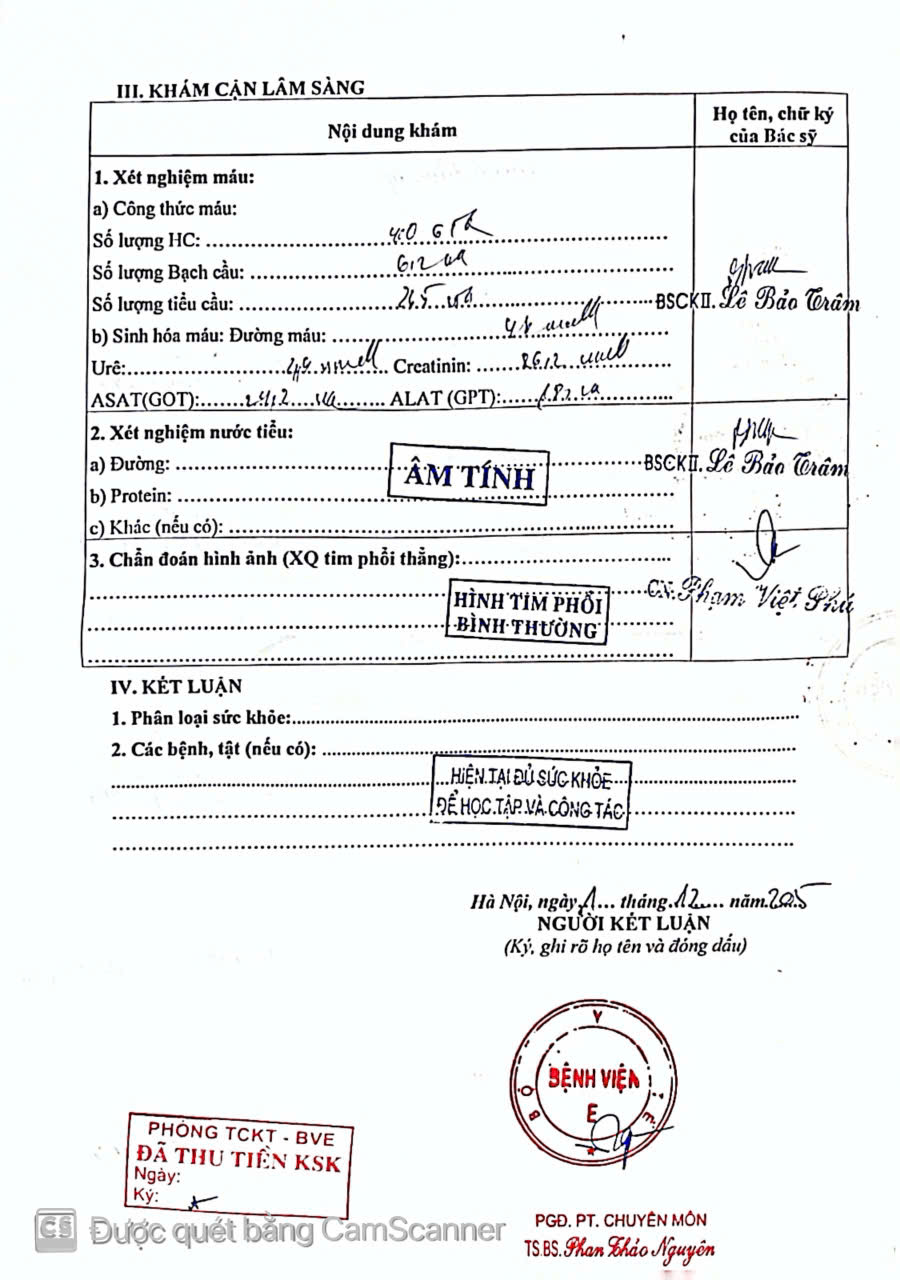 III. KHÁM CẬN LÂM SÀNG
Nội dung khám
Họ tên, chữ ký
của Bác sỹ
1. Xét nghiệm máu:
a) Công thức máu:
Số lượng HC: 4.0
Số lượng Bạch cầu: 6,2
Số lượng tiểu cầu: 265
BSCKII. Lê Bảo Trâm
b) Sinh hóa máu: Đường máu:
Urê: Creatinin:
ASAT(GOT): 24,2 ALAT (GPT):
2. Xét nghiệm nước tiểu:
a) Đường:
ÂM TÍNH
BSCKII. Lê Bảo Trâm
b) Protein:
c) Khác (nếu có):
3. Chẩn đoán hình ảnh (XQ tim phổi thẳng):
HÌNH TIM PHỔI
BÌNH THƯỜNG
CN. Phạm Việt Phú
IV. KẾT LUẬN
1. Phân loại sức khỏe:
2. Các bệnh, tật (nếu có):
HIỆN TẠI ĐỦ SỨC KHỎE
ĐỂ HỌC TẬP VÀ CÔNG TÁC
Hà Nội, ngày 1 tháng 12 năm 2025
NGƯỜI KẾT LUẬN
(Ký, ghi rõ họ tên và đóng dấu)
BỘ Y TẾ
BỆNH VIỆN
E
PHÒNG TCKT - BVE
ĐÃ THU TIỀN KSK
Ngày:
Ký:
CS Được quét bằng CamScanner
PGĐ. PT. CHUYÊN MÔN
TS.BS. Phan Thảo Nguyên